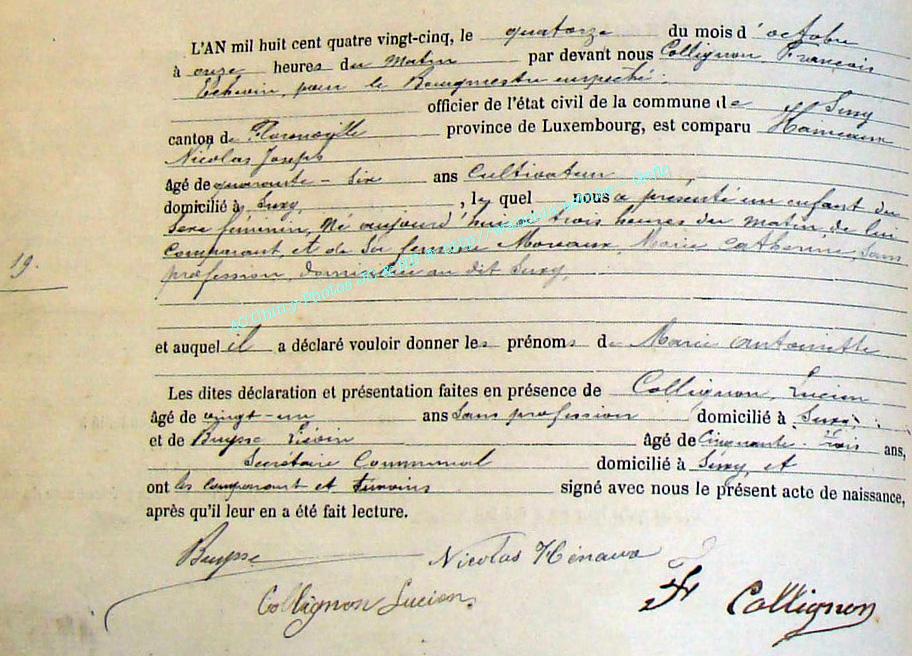 L'AN mil huit cent quatre vingt-cinq, le quatorze du mois d' octobre
à onze heures du matin par devant nous Collignon François
Echevin, pour le Bourgmestre empêché.
officier de l'état civil de la commune de Suxy
canton de Florenville province de Luxembourg, est comparu
Nicolas Joseph
âgé de quarante-six ans Cultivateur
domicilié à Suxy, lequel nous a présenté un enfant du
sexe féminin, né aujourd'hui à trois heures du matin, de lui
19.
comparant, et de sa femme Moreaux Marie Catherine, sans
profession, domiciliée au dit Suxy,
et auquel il a déclaré vouloir donner les prénoms de Marie Antoinette
Les dites déclaration et présentation faites en présence de Collignon, Lucien
âgé de vingt-un ans sans profession domicilié à Suxy;
et de Buysse Liévin âgé de Cinquante-trois ans,
Secrétaire Communal domicilié à Suxy, et
ont les comparant et témoins signé avec nous le présent acte de naissance,
après qu'il leur en a été fait lecture.
Buysse Nicolas
Collignon Lucien Collignon